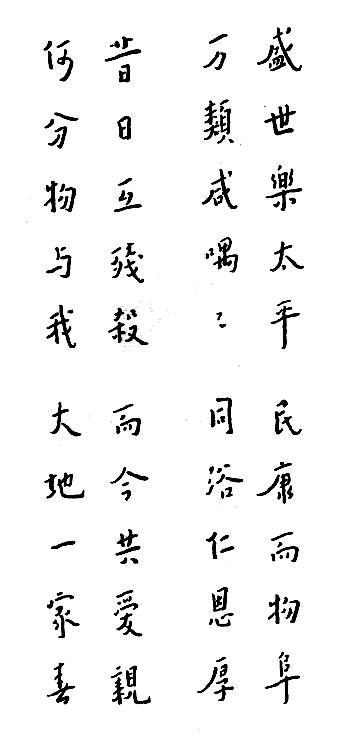 盛世樂太平 民康而物阜
万類咸喁〻 同浴仁恩厚
昔日互殘殺 而今共愛親
何分物与我 大地一家春